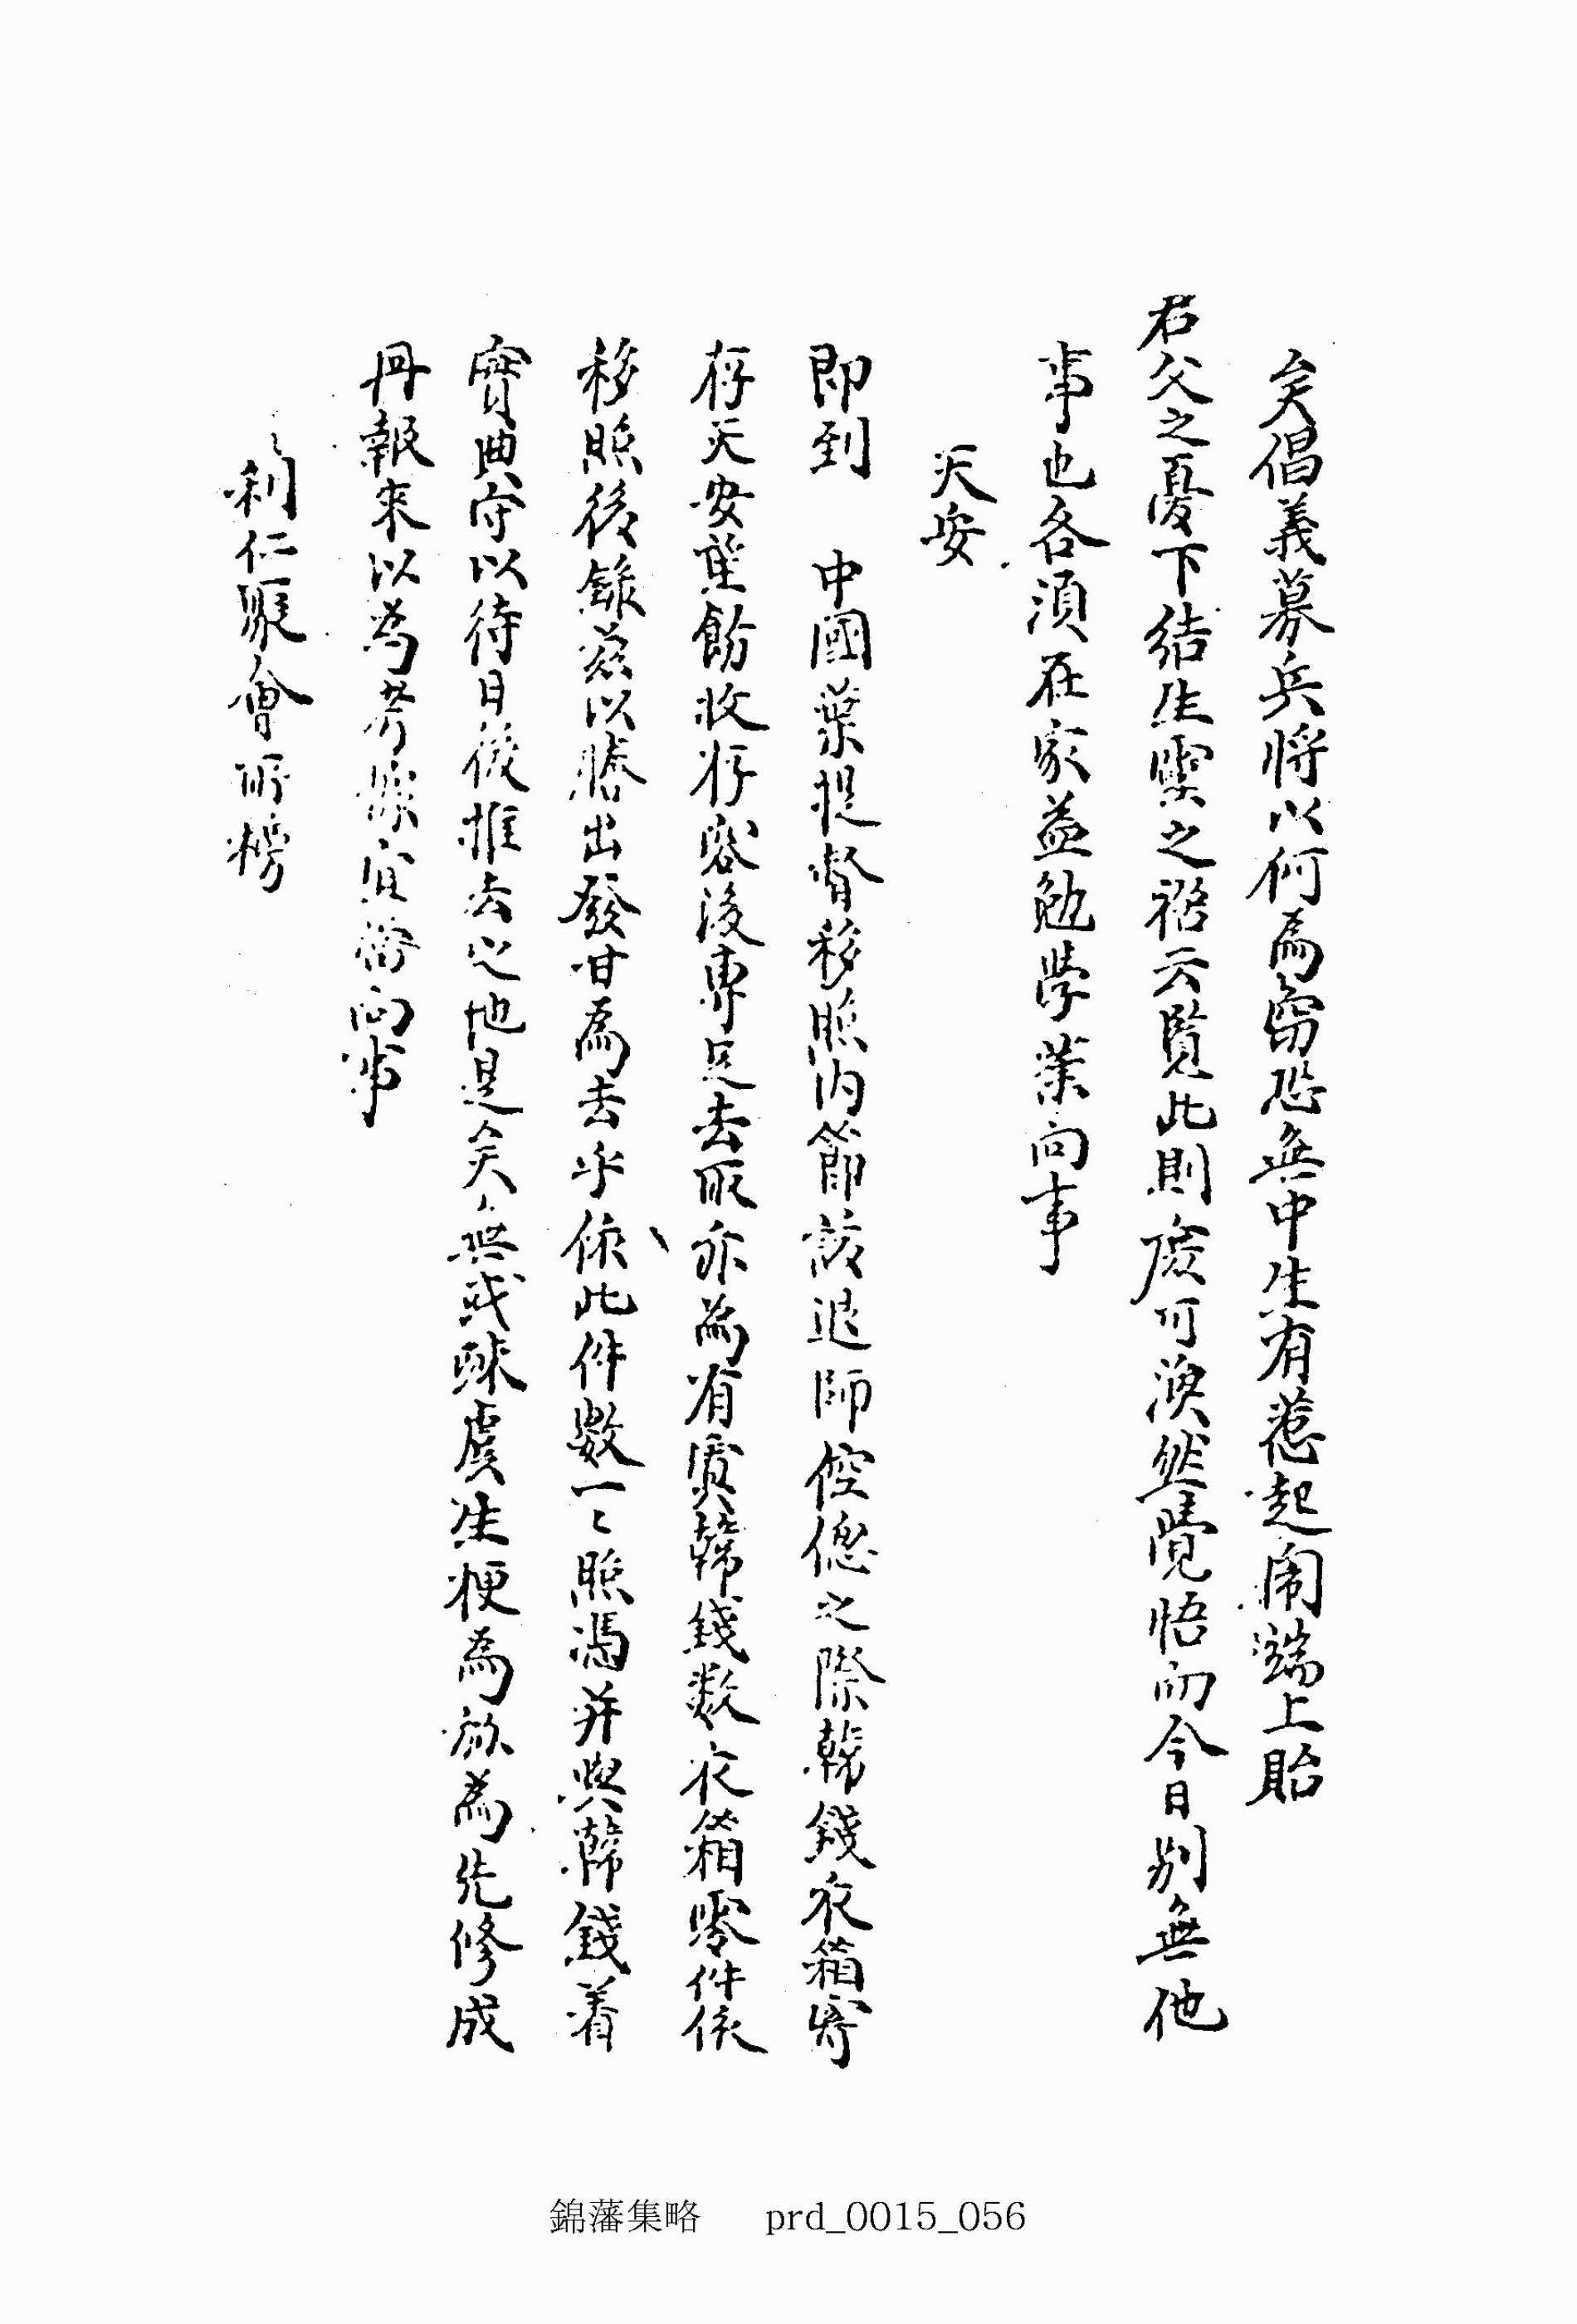 矣倡義募兵將以何爲窃恐無中生有惹起閙端上貽
君父之憂下結生靈之禍云覧此則庶可渙然覺悟而今日別無他
事也各須在家益勉學業向事
天安
即到　中國葉提督移照內節該退師倥傯之際韓錢衣箱寄
存天安葉飭收存容後專足去取亦爲有實韓錢數衣箱零件依
移照後錄玆以謄出發甘爲去乎依此件數一〻照憑并與韓錢着
實典守以待日後推去之地是矣無或踈虞生梗爲旀爲先修成
冊報來以爲考據宜當向事
利仁聚會所榜
錦藩集略　prd_0015_056